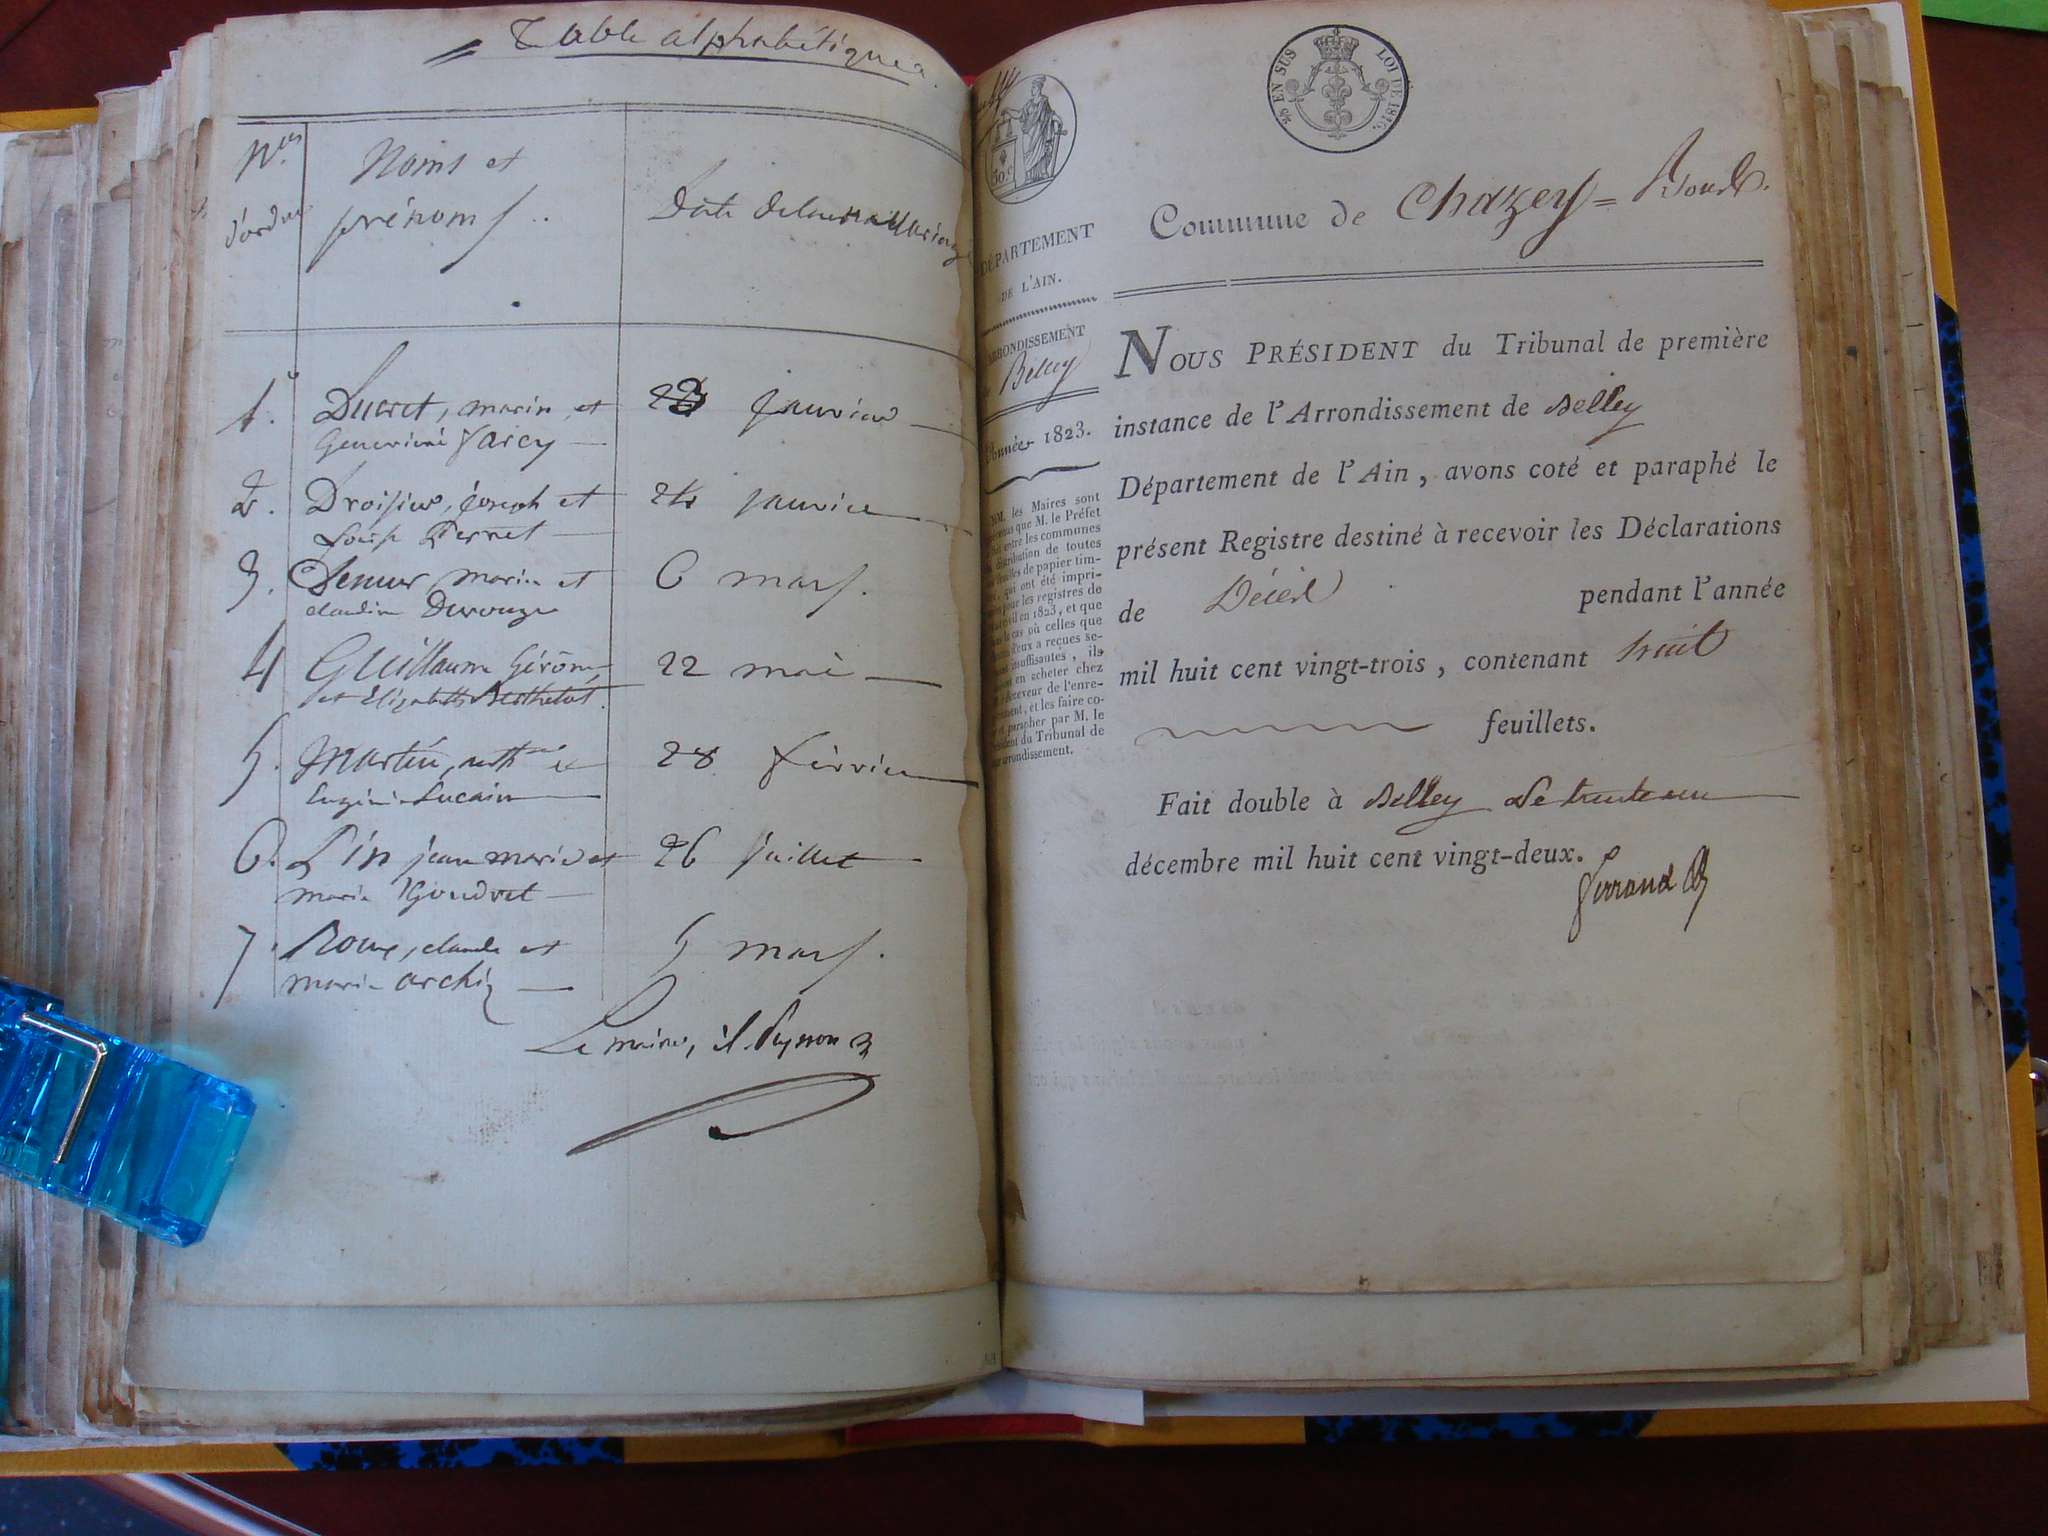 Table alphabétique
Nos
d'ordre
Noms et
prénoms
Date de Mariage
1. Ducret, marin et 23 janvier
Genevieve Farcy
2. Droisier, joseph et 24 janvier
Louise Pernet
3. marin et 6 mars.
claudine Derouze
4 Guillaume Gérôme 22 mai
et Elizabeth Berthelot.
5. Martin, et 28 février
Eugénie Lucain
6. Pin jean marie et 26 juillet
marie Goudret
7. Roux, claude et 5 mars.
marie archi
Le maire, Peysson
EN SUS
LOI DE 1816.
50.c
DÉPARTEMENT
DE L'AIN.
ARRONDISSEMENT
de Belley
Année 1823.
MM. les Maires sont
prévenus que M. le Préfet
fait entre les communes
la distribution de toutes
les feuilles de papier tim-
bré, qui ont été impri-
mées pour les registres de
l'état civil en 1823, et que
dans le cas où celles que
chacun d'eux a reçues se-
raient insuffisantes, ils
devront en acheter chez
le Receveur de l'enre-
gistrement, et les faire co-
ter et parapher par M. le
Président du Tribunal de
leur arrondissement.
Commune de Chazey=Bons.
NOUS PRÉSIDENT du Tribunal de première
instance de l'Arrondissement de Belley
Département de l'Ain, avons coté et paraphé le
présent Registre destiné à recevoir les Déclarations
de Décès pendant l'année
mil huit cent vingt-trois, contenant huit
feuillets.
Fait double à Belley Le trente un
décembre mil huit cent vingt-deux.
Ferrand